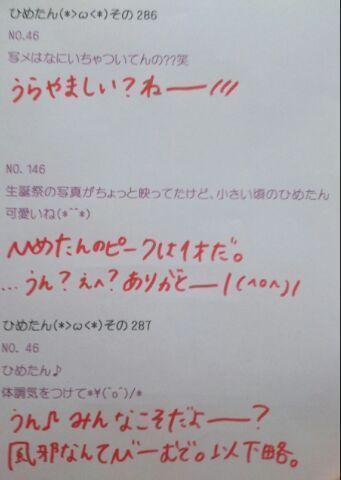 ひめたん(*>ω<*)その286
NO.46
写メはなにいちゃついてんの??笑
うらやましい?ねー///
NO.146
生誕祭の写真がちょっと映ってたけど、小さい頃のひめたん
可愛いね(*^^*)
ひめたんのピークは1才だ。
…うん?えへ?ありがとー!(^o^)!
ひめたん(*>ω<*)その287
NO. 46
ひめたん♪
体調気をつけて*\(^o^)/*
うん♪みんなこそだよー?
風邪なんてびーむで。以下略。